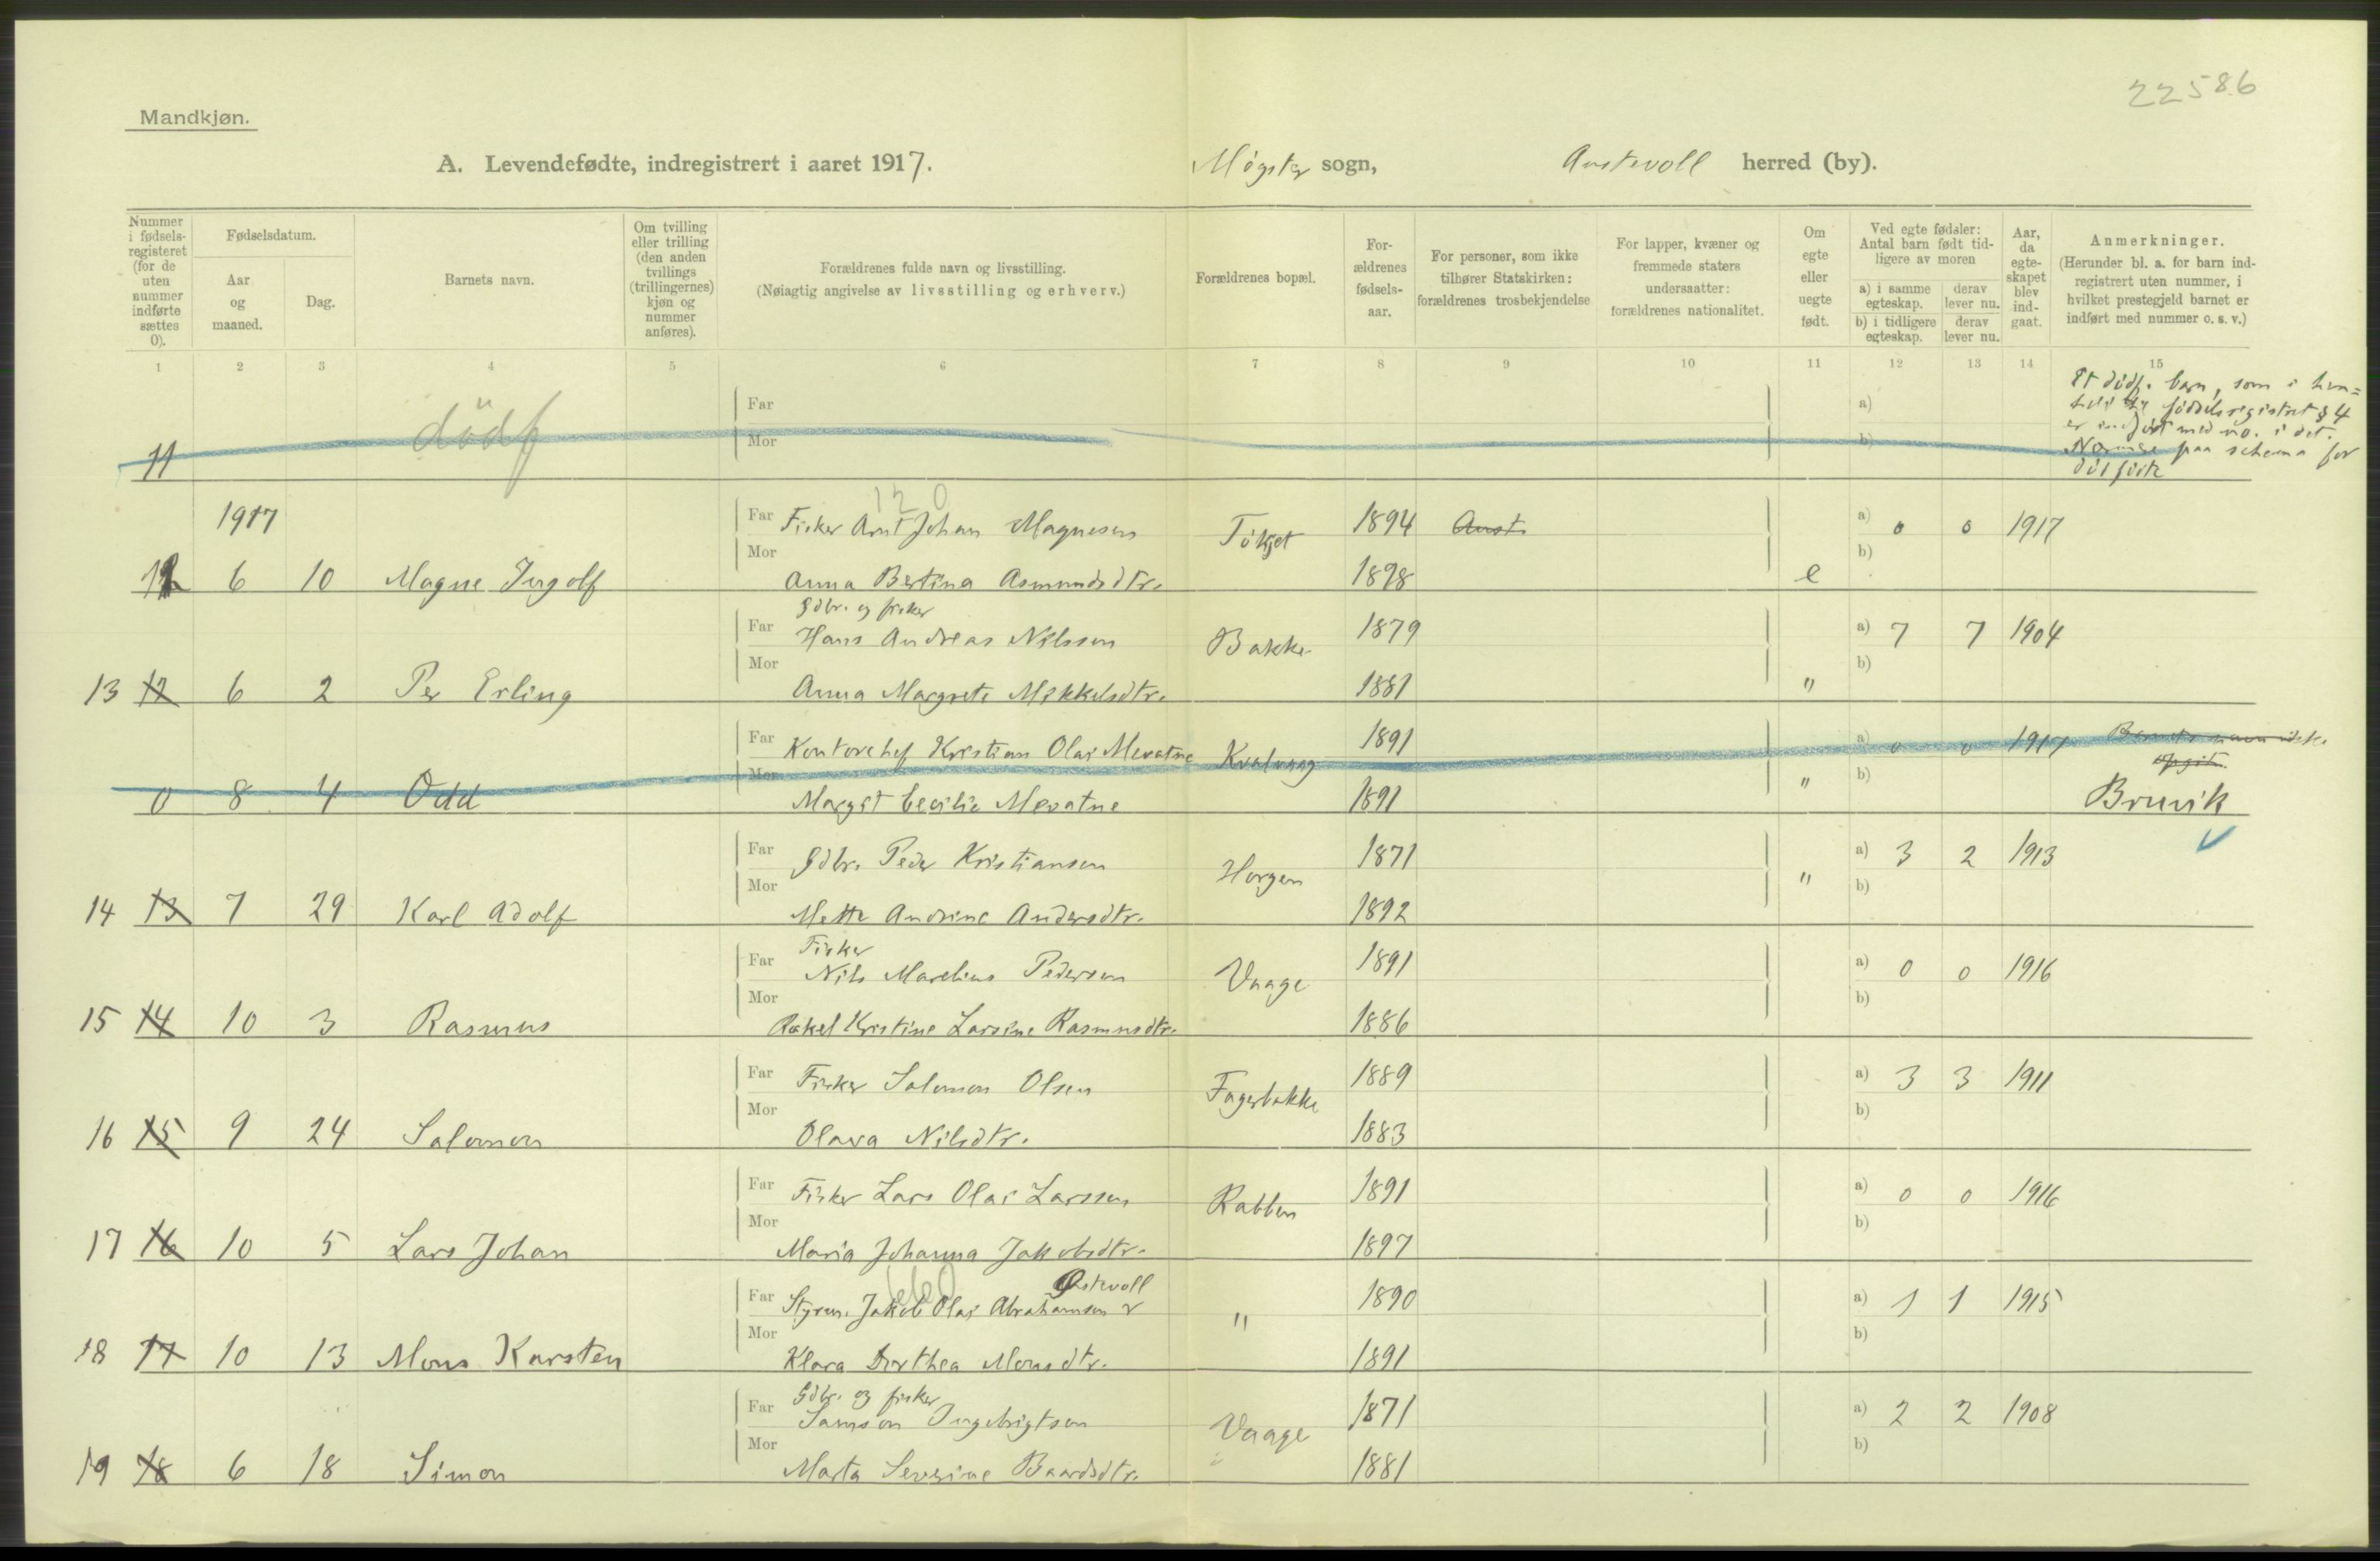 22586
Mandkjøn.
A. Levendefødte, indregistrert i aaret 1917. Møgster sogn, Austevoll herred (by).
Nummer i fødselsregisteret (for de uten nummer indførte sættes 0).
Fødselsdatum.
Aar og maaned.
Dag.
Barnets navn.
Om tvilling eller trilling (den anden tvillings (trillingernes) kjøn og nummer anføres).
Forældrenes fulde navn og livsstilling.
(Nøiagtig angivelse av livsstilling og erhverv.)
Forældrenes bopæl.
Forældrenes fødselsaar.
For personer, som ikke tilhører Statskirken: forældrenes trosbekjendelse
For lapper, kvæner og fremmede staters undersaatter: forældrenes nationalitet.
Om egte eller uegte født.
Ved egte fødsler: Antal barn født tidligere av moren
a) i samme egteskap. derav lever nu.
b) i tidligere egteskap. derav lever nu.
Aar, da egteskapet blev indgaat.
Anmerkninger.
(Herunder bl. a. for barn indregistrert uten nummer, i hvilket prestegjeld barnet er indført med nummer o. s. v.)
1 2 3 4 5 6 7 8 9 10 11 12 13 14 15
Far a) Et dødf. barn, som i hen=
fødselsregistret § 4
er indført med no. i det.
paa schema for
11 dödf Mor b)
1917 120
Far Fisker Arnt Johan Magnesen Tökjet 1894 Aust. a) 0 0 1917
12 6 10 Magne Ingolf Mor Anna Bertina Asmundsdtr. 1898 e b)
Gdbr. og fisker
Far Hans Andreas Nilssen Bakke 1879 a) 7 7 1904
13 12 6 2 Per Erling Mor Anna Margrete Mikkelsdtr. 1881 " b)
Far Kontorchef Kristian Olai Mevatne Kvalvaag 1891 a) 0 0 1917 Barnets navn ikke
opgit.
0 8 4 Odd Mor Margit Cecilie Mevatne 1891 " b) Bruvik
Far Gdbr. Peder Kristiansen Horgen 1871 a) 3 2 1913
14 13 7 29 Karl Adolf Mor Mette Andrine Andersdtr. 1892 " b)
Fisker
Far Nils Marelius Pedersen Vaage 1891 a) 0 0 1916
15 14 10 3 Rasmus Mor Rakel Kristine Larsine Rasmusdtr. 1886 b)
Far Fisker Salomon Olsen Fagerbakke 1889 a) 3 3 1911
16 15 9 24 Salomon Mor Olava Nilsdtr. 1883 b)
Far Fisker Lars Olai Larssen Rabben 1891 a) 0 0 1916
17 16 10 5 Lars Johan Mor Maria Johanna Jakobsdtr. 1897 b)
Østevoll
Far Styrm. Jakob Olai Abrahamsen " 1890 a) 1 1 1915
18 17 10 13 Mons Karsten Mor Klara Dorthea Monsdtr. 1891 b)
Gdbr. og fisker
Far Samson Ingebrigtsen Vaage 1871 a) 2 2 1908
19 18 6 18 Simon Mor Marta Severine Baardsdtr. 1881 b)